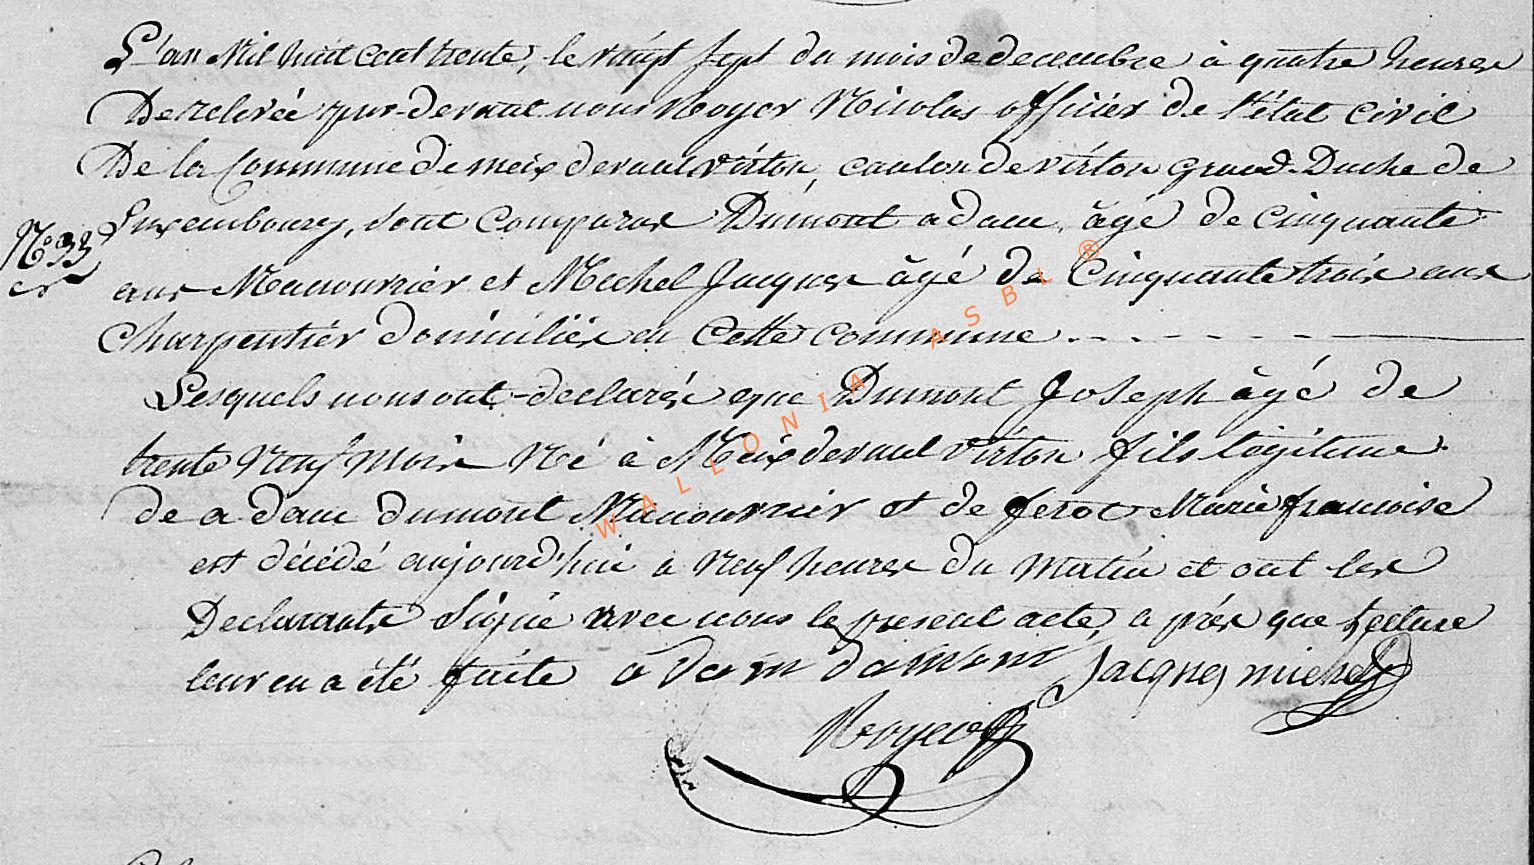 L'an Mil huit cent trente, le vingt sept du mois de decembre à quatre heures
De relevée par-devant nous Noyer Nicolas officier de l'état civil
De la Commune de meix devant virton, canton de virton grand-Duché de
N° 33 Luxembourg, sont Comparus Dumont adam, âgé de cinquante
ans Manouvrier et Michel Jacques âgé de Cinquante trois ans
Charpentier domiciliés en cette commune
Lesquels nous ont declarés que Dumont Joseph âgé de
trente Neuf Mois Né à Meix devant virton fils légitime
de adam dumont Manouvrier et de Marie francoise
est décédé aujourd'hui a Neuf heures du Matin et ont les
Declarants Signé avec nous le present acte, a près que Lecture
leur en a été faite adam dumont Jacques michel
WALLONIA ASBL ®